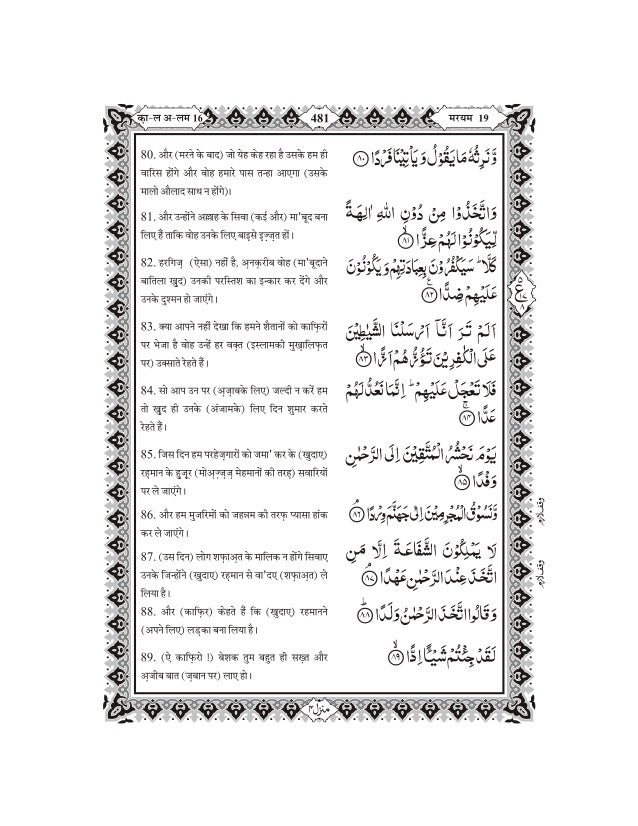 का-ल अ-लम 16
481
मरयम 19
80. और (मरने के बाद) जो येह केह रहा है उसके हम ही
वारिस होंगे और वोह हमारे पास तन्हा आएगा (उसके
मालो औलाद साथ न होंगे)।
وَّنَرِثُهٗ مَا يَقُوْلُ وَ يَاْتِيْنَا فَرْدًا ﴿۸۰﴾
81. और उन्होंने अल्लाह के सिवा (कई और) मा'बूद बना
लिए हैं ताकि वोह उनके लिए बाइसे इज़्ज़त हों।
وَاتَّخَذُوْا مِنْ دُوْنِ اللّٰهِ اٰلِهَةً
لِّيَكُوْنُوْا لَهُمْ عِزًّا ﴿۸۱﴾
82. हरगिज़ (ऐसा) नहीं है, अ़नक़रीब वोह (मा'बूदाने
बातिला ख़ुद) उनकी परस्तिश का इन्कार कर देंगे और
उनके दुश्मन हो जाएंगे।
كَلَّا ؕ سَيَكْفُرُوْنَ بِعِبَادَتِهِمْ وَ يَكُوْنُوْنَ
عَلَيْهِمْ ضِدًّا ﴿۸۲﴾
83. क्या आपने नहीं देखा कि हमने शैतानों को काफ़िरों
पर भेजा है वोह उन्हें हर वक़्त (इस्लामकी मुख़ालिफ़त
पर) उक्साते रेहते हैं।
اَلَمْ تَرَ اَنَّاۤ اَرْسَلْنَا الشَّيٰطِيْنَ
عَلَى الْكٰفِرِيْنَ تَؤُزُّهُمْ اَزًّا ﴿۸۳﴾
84. सो आप उन पर (अ़ज़ाबके लिए) जल्दी न करें हम
तो ख़ुद ही उनके (अंजामके) लिए दिन शुमार करते
रेहते हैं।
فَلَا تَعْجَلْ عَلَيْهِمْ ؕ اِنَّمَا نَعُدُّ لَهُمْ
عَدًّا ﴿۸۴﴾
85. जिस दिन हम परहेज़गारों को जमा' कर के (ख़ुदाए)
रहमान के हुज़ूर (मोअ़ज़्ज़ज़ मेहमानों की तरह) सवारियों
पर ले जाएंगे।
يَوْمَ نَحْشُرُ الْمُتَّقِيْنَ اِلَى الرَّحْمٰنِ
وَفْدًا ﴿۸۵﴾
86. और हम मुजरिमों को जहन्नम की तरफ़ प्यासा हांक
कर ले जाएंगे।
وَّنَسُوْقُ الْمُجْرِمِيْنَ اِلٰى جَهَنَّمَ وِرْدًا ﴿۸۶﴾
87. (उस दिन) लोग शफ़ाअ़त के मालिक न होंगे सिवाए
उनके जिन्होंने (ख़ुदाए) रहमान से वा'दए (शफ़ाअ़त) ले
लिया है।
لَا يَمْلِكُوْنَ الشَّفَاعَةَ اِلَّا مَنِ
اتَّخَذَ عِنْدَ الرَّحْمٰنِ عَهْدًا ﴿۸۷﴾
88. और (काफ़िर) केहते हैं कि (ख़ुदाए) रहमानने
(अपने लिए) लड़का बना लिया है।
وَ قَالُوا اتَّخَذَ الرَّحْمٰنُ وَلَدًا ﴿۸۸﴾
89. (ऐ काफ़िरो !) बेशक तुम बहुत ही सख़्त और
अ़जीब बात (ज़बान पर) लाए हो।
لَقَدْ جِئْتُمْ شَيْـًٔا اِدًّا ﴿۸۹﴾
وقف لازم
وقف لازم
منزل ۴